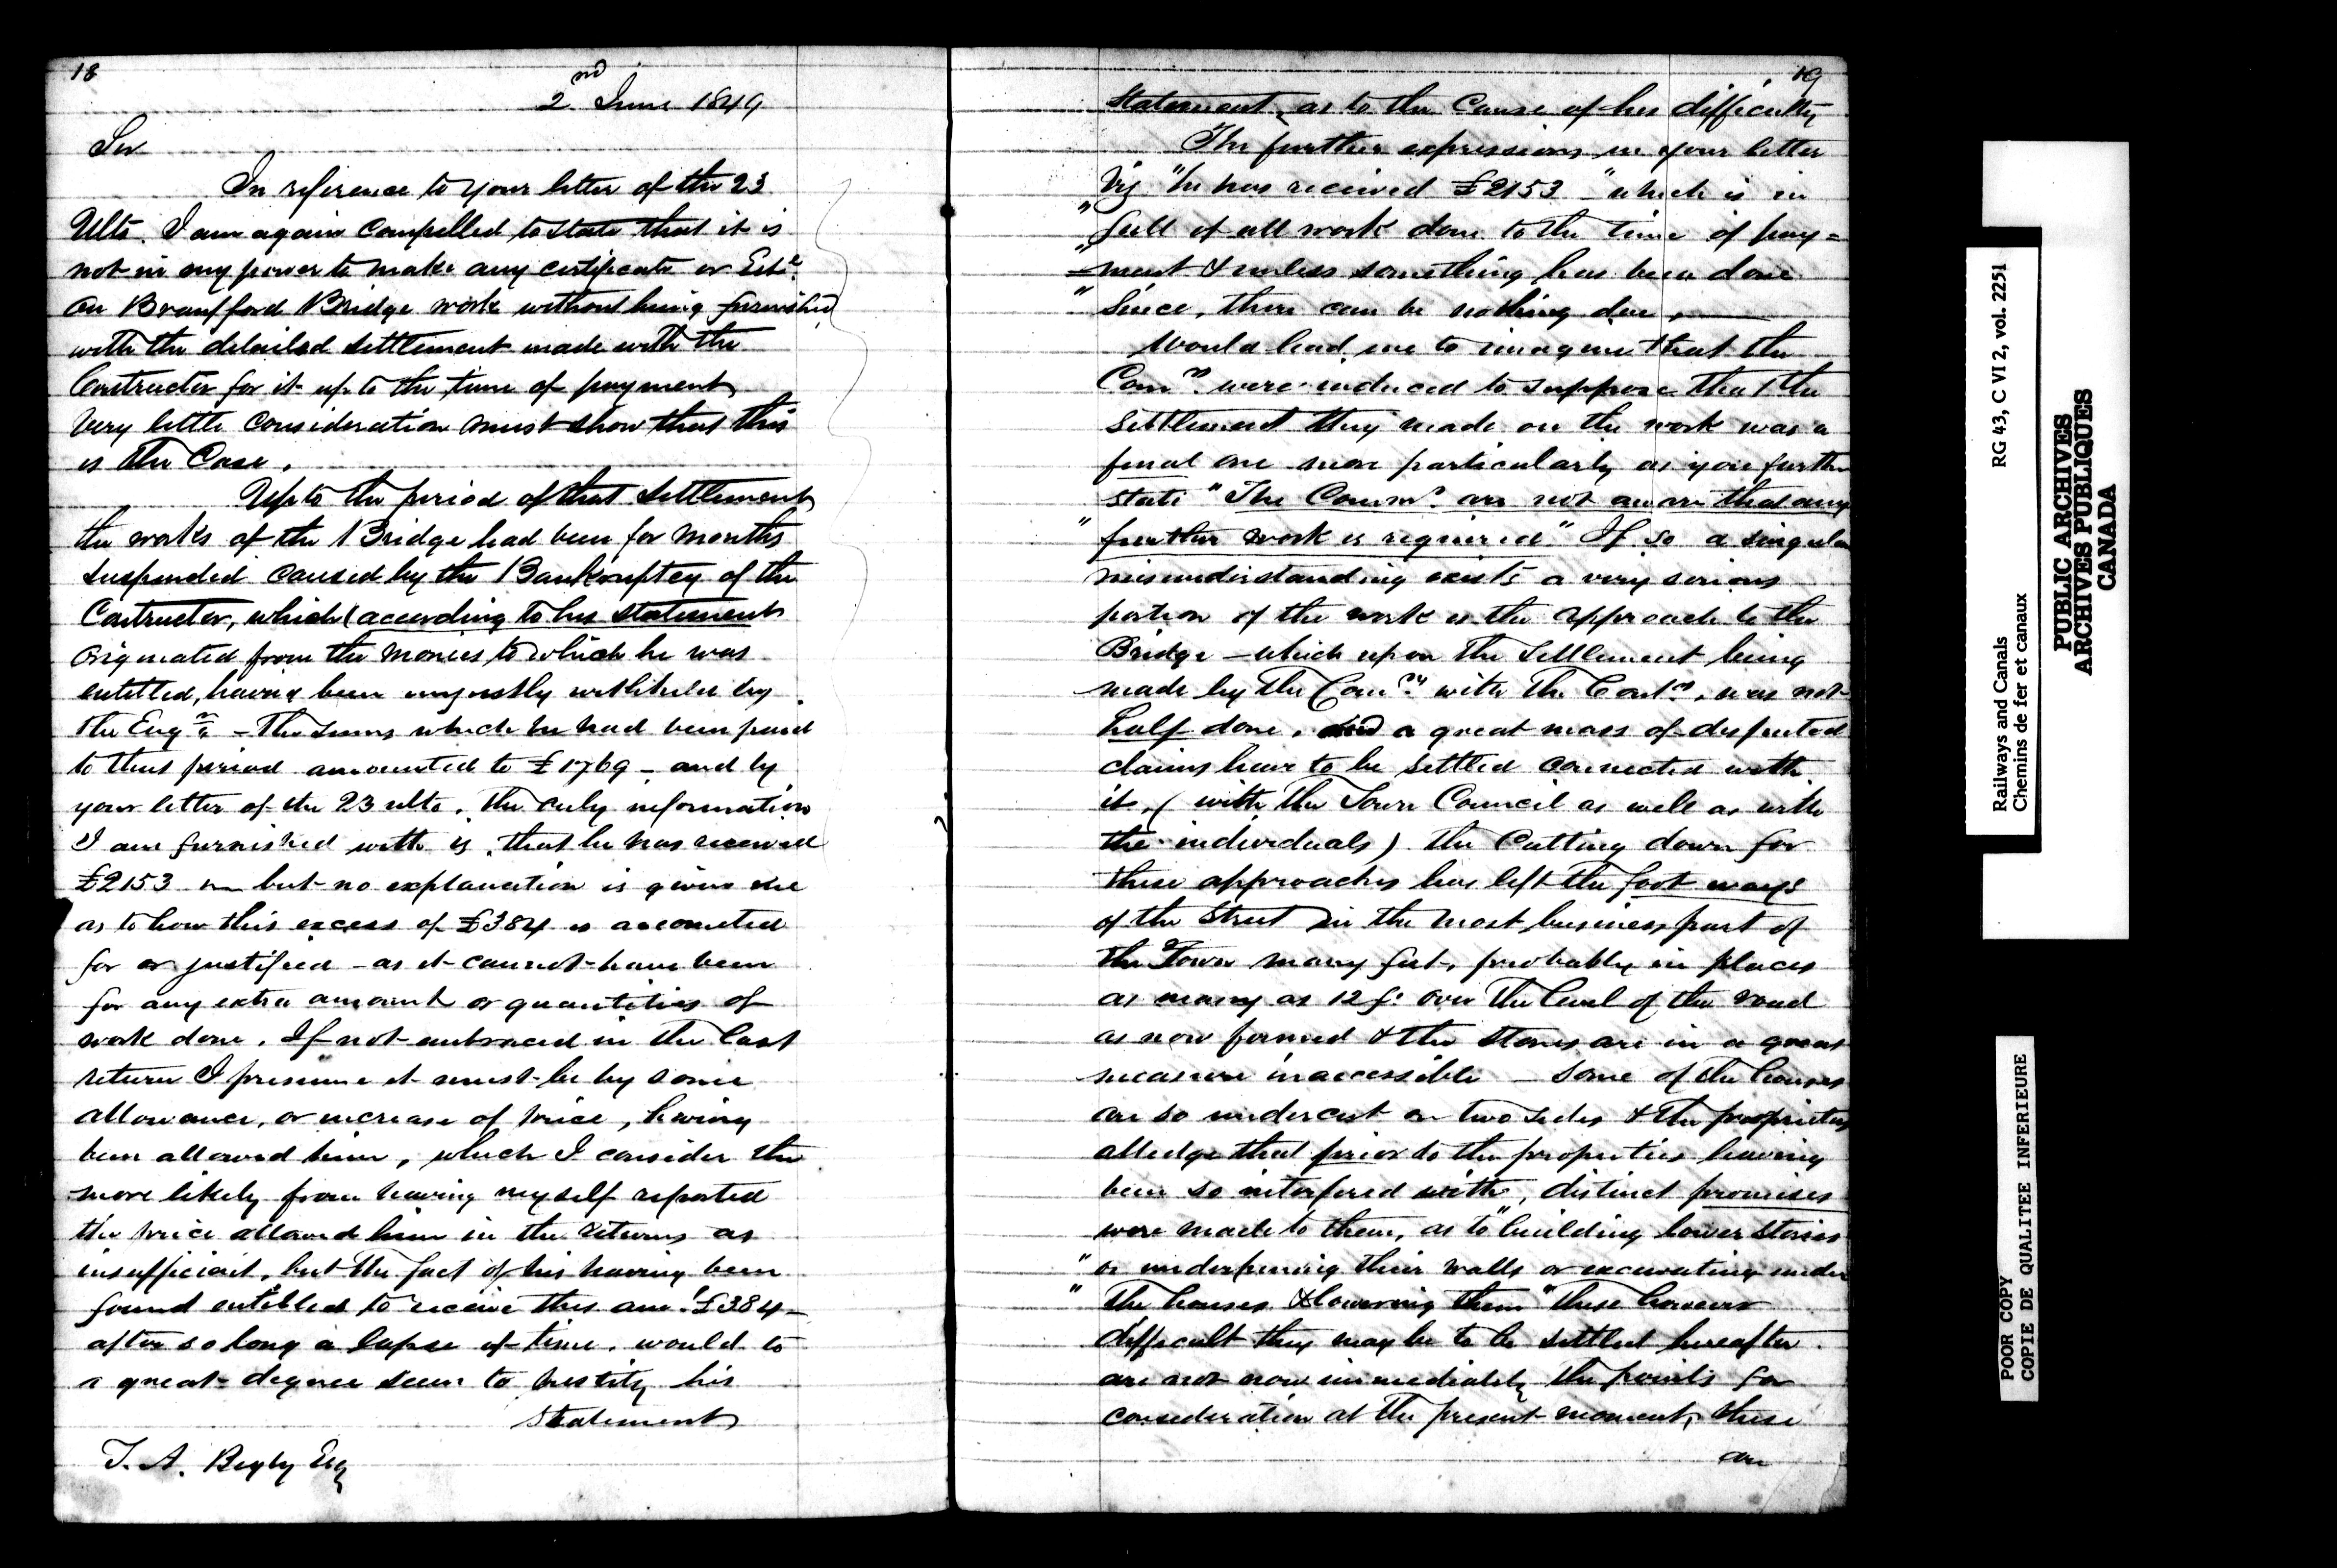 18
2nd June 1849
Sir
In reference to your letter of the 23
Ulto. I am again Compelled to state that it is
not in my power to make any certificate or Este.
on Brantford Bridge work without being furnished
with the detailed settlement made with the
Contractor for it up to the time of payment
Very little Consideration must show that this
is the Case.
Up to the period of that settlement
the works of the Bridge had been for months
suspended caused by the Bankruptcy of the
Contractor, which (according to his statement
originated from the monies to which he was
entitled, having been unjustly withheld by
the Engr. - The sums which he had been paid
to this period amounted to £1769 - and by
your letter of the 23 ulto. the only information
I am furnished with is, that he has received
£2153 but no explanation is given me
as to how this excess of £384 is accounted
for or justified - as it cannot have been
for any extra amount or quantities of
work done. If not embraced in the last
return I presume it must be by some
allowance, or increase of price, having
been allowed him, which I consider the
more likely from having myself reported
the price allowed him in the returns as
insufficient, but the fact of his having been
found entitled to receive this amt. £384 -
after so long a lapse of time, would to
a great degree seem to justify his
statement
T. A. Begly Esq
19
Statement, as to the Cause of his difficulty
The further expressions in your letter
Viz "he has received £2153 - "which is in
" full of all work done to the time of pay=
"=ment & unless something has been done
" since, there can be nothing due,
Would lead me to imagine that the
Comrs. were induced to suppose that the
settlement they made on the work was a
final one more particularly as you further
state "The Commrs. are not aware that any
" further work is required" If so a singular
misunderstanding exists a very serious
portion of the work is the approach to the
Bridge - which upon the settlement being
made by the Comrs. with the Contr., was not
half done, and a great mass of disputed
claims have to be settled connected with
it, (with the Town Council as well as with
the individuals) the Cutting down for
these approaches has left the foot ways
of the Street in the most business part of
the Town many feet, probably in places
as many as 12 ft over the level of the road
as now formed & the stores are in a great
measure inaccessible - Some of the houses
are so undercut on two sides & the proprietors
alledge that prior to the properties having
been so interfered with, distinct promises
were made to them, as to "building lower stories
" or underpinning their walls or excavating under
" the houses & lowering them" these however
difficult they may be to be settled hereafter
are not now immediately the points for
consideration at the present moment, these
are
Railways and Canals RG 43, C VI 2, vol. 2251
Chemins de fer et canaux
PUBLIC ARCHIVES
ARCHIVES PUBLIQUES
CANADA
POOR COPY
COPIE DE QUALITEE INFERIEURE